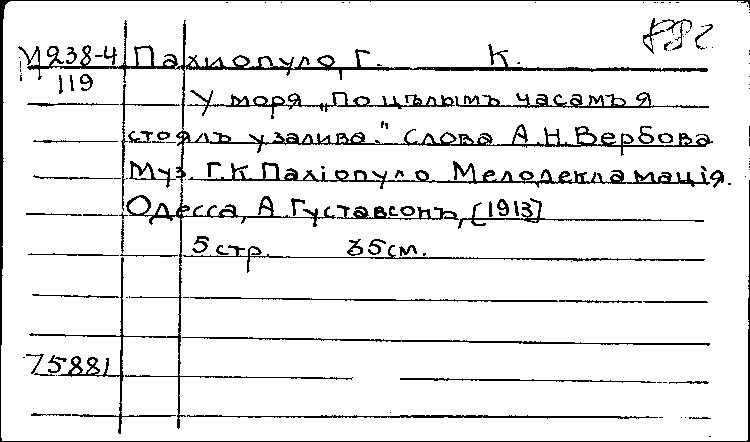 М238-4 Пахиопуло, Г. К.
119
У моря „По цѣлымъ часамъ я
стоялъ у залива." Слова А.Н.Вербова
Муз. Г.К Пахіопуло Мелодекламація.
Одесса, А Густавсонъ, [1913]
5 стр. 35см.
75881